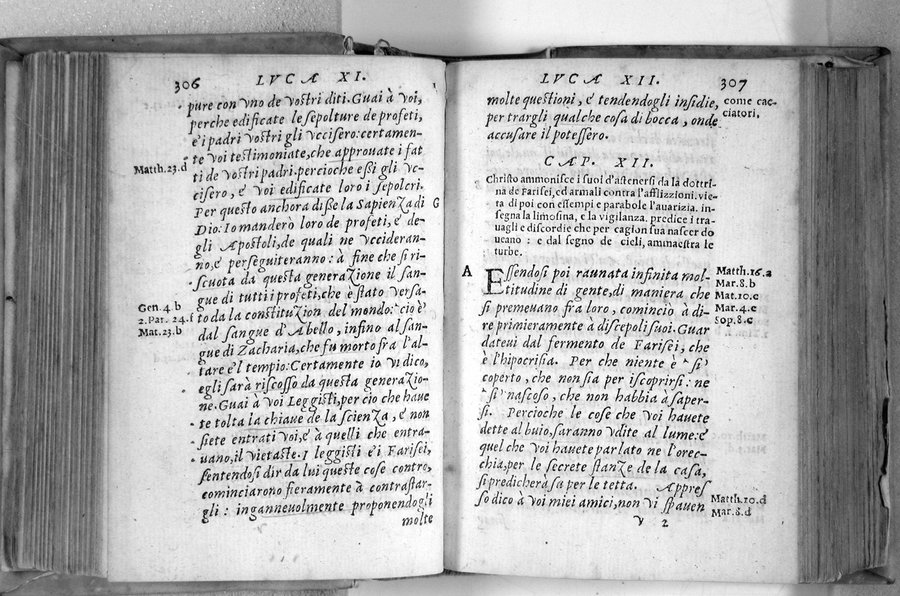 306 LVCÆ XI.
pure con vno de vostri diti. Guai à voi,
perche edificate le sepolture de profeti,
e i padri vostri gli vccisero: certamen-
te voi testimoniate, che approuate i fat
Matth. 23. d
ti de vostri padri. percioche eßi gli vc-
cisero, e voi edificate loro i sepolcri.
Per questo anchora diße la Sapienza di
G
Dio: Io manderò loro de profeti, e de-
gli Apostoli, de quali ne vccideran-
no, e perseguiteranno: à fine che si ri-
scuota da questa generazione il san-
gue di tutti i profeti, che è stato versa-
Gen. 4. b
2. Par. 24. f
Mat. 23. b
to da la constituzion del mondo: cio è
dal sangue d'Abello, infino al san-
gue di Zacharia, che fu morto fra l'al-
tare e'l tempio: Certamente io vi dico,
egli sarà riscosso da questa generazio-
ne. Guai à voi Leggisti, per cio che haue
te tolta la chiaue de la scienza, e non
siete entrati voi, e à quelli che entra-
uano, il vietaste. I leggisti e i Farisei,
sentendosi dir da lui queste cose contro,
cominciarono fieramente à contrastar-
gli: ingannevolmente proponendogli
molte
LVCÆ XII. 307
molte questioni, e tendendogli insidie,
per trargli qualche cosa di bocca, onde
accusare il potessero.
come cac-
ciatori,
CAP. XII.
Christo ammonisce i suoi d'astenersi da la dottri
na de Farisei, ed armali contra l'afflizzioni. vie
ta di poi con essempi e parabole l'auarizia. in
segna la limosina, e la vigilanza. predice i tra
uagli e discordie che per cagion sua nascer do
ucano: e dal segno de cieli, ammaestra le
turbe.
A
Essendosi poi raunata infinita mol-
titudine di gente, di maniera che
si premeuano fra loro, comincio à di-
re primieramente a discepoli suoi. Guar
dateui dal fermento de Farisei, che
Matth. 16. a
Mar. 8. b
Mat. 10. c
Mar. 4. c
Sop. 8. c
è l'hipocrisia. Per che niente è si
coperto, che non sia per iscoprirsi: ne
si nascoso, che non habbia à saper-
si. Percioche le cose che voi hauete
dette al buio, saranno vdite al lume: e
quel che voi hauete parlato ne l'orec-
chia, per le secrete stanze de la casa,
si predicherà sa per le tetta. Appres
so dico à voi miei amici, non vi spauen
Matth. 10. d
Mar. 8. d
v 2